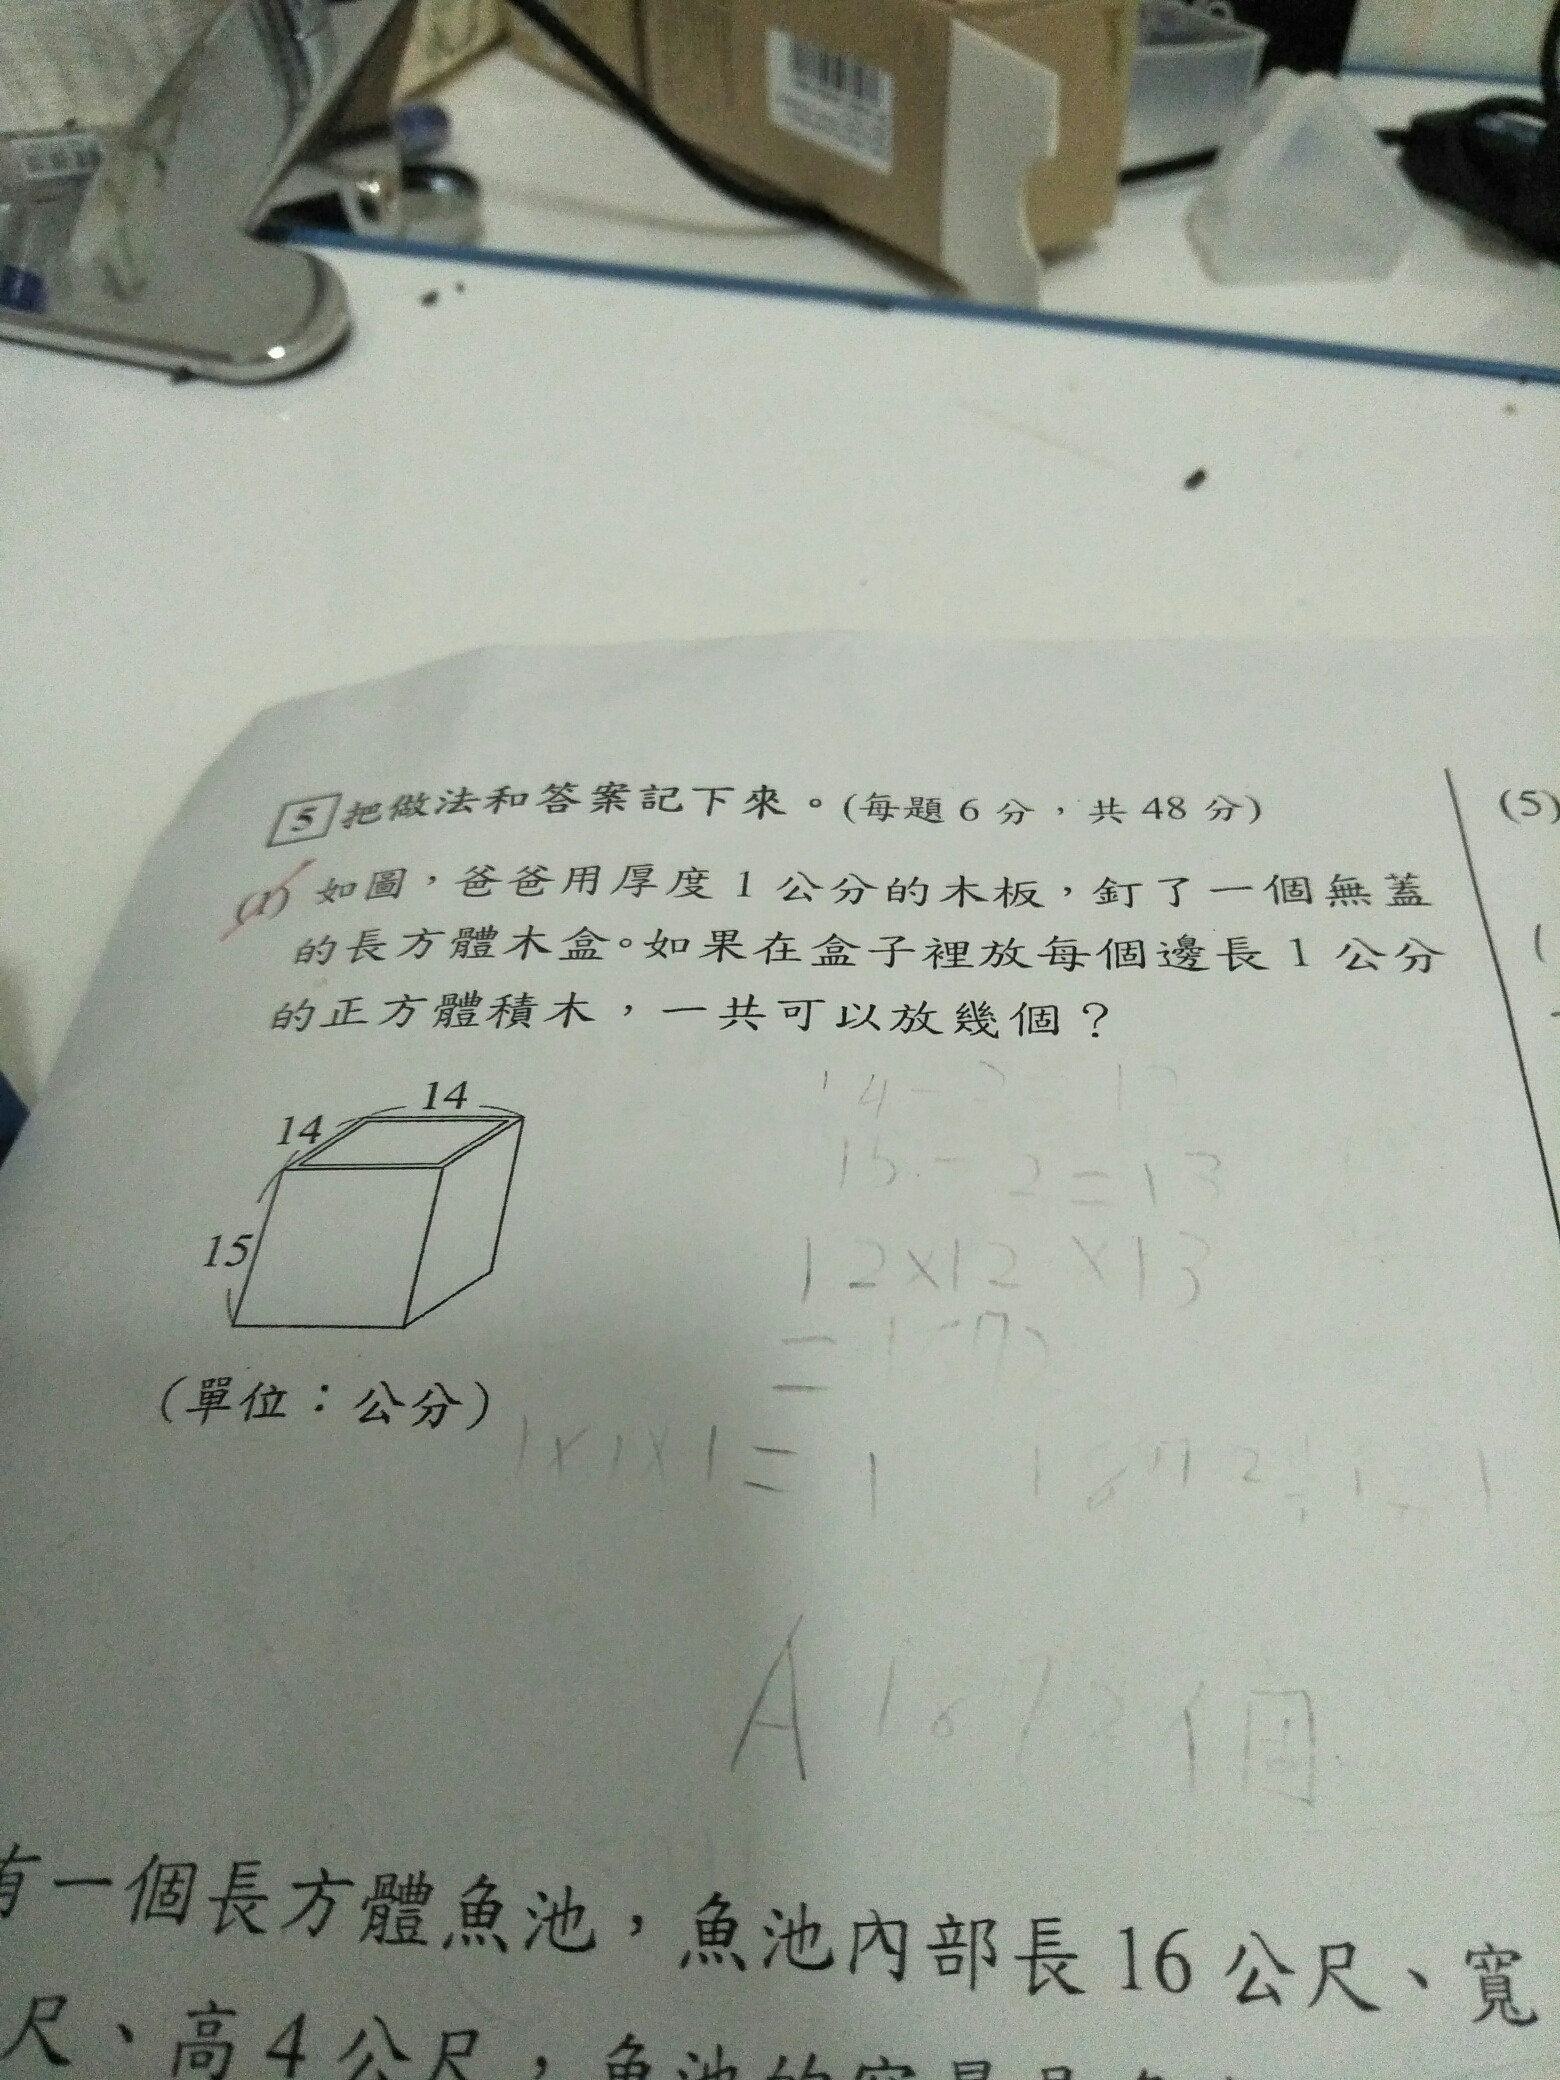 5 把做法和答案記下來。(每題 6 分，共 48 分)
(1) 如圖，爸爸用厚度 1 公分的木板，釘了一個無蓋
的長方體木盒。如果在盒子裡放每個邊長 1 公分
的正方體積木，一共可以放幾個？
14
14
15
(單位：公分)
15-2=13
12×12×13
1×1×1=1
A 1872個
(5)
有一個長方體魚池，魚池內部長 16 公尺、寬
尺、高 4 公尺，魚池的容